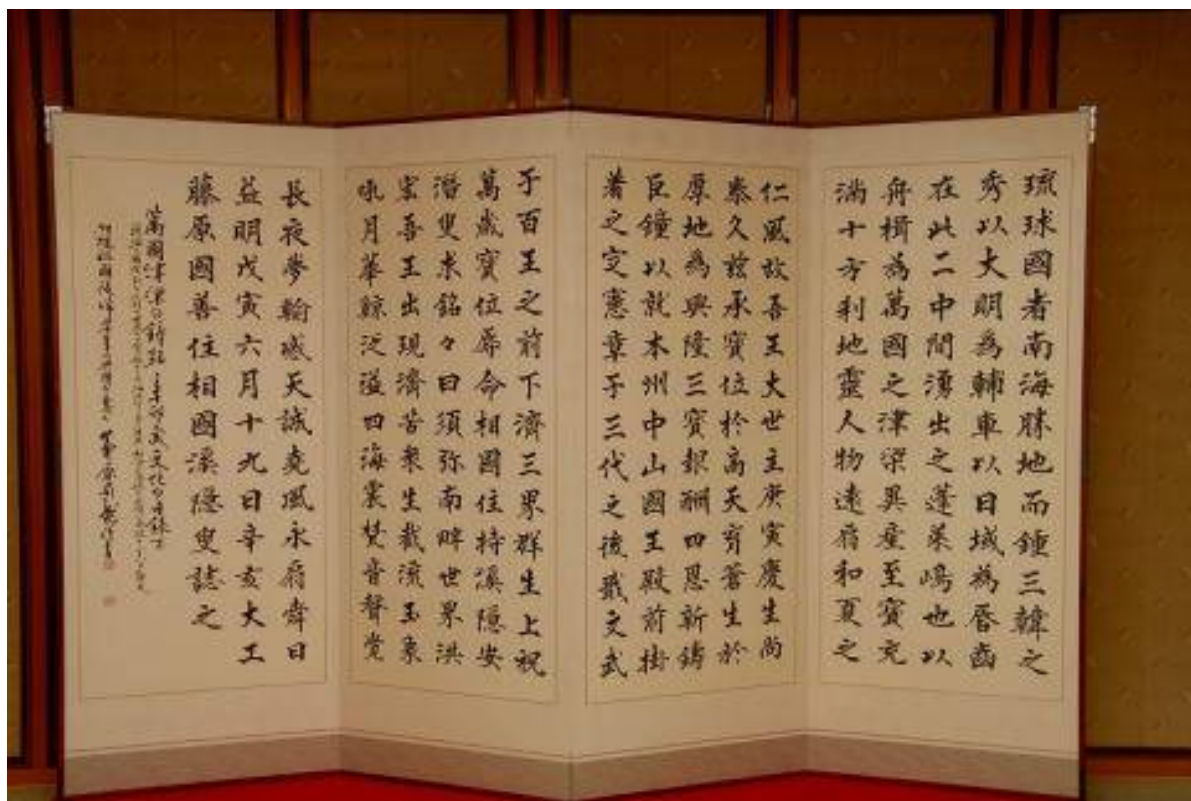 琉球國者南海勝地而鍾三韓之
秀以大明為輔車以日域為唇齒
在此二中間湧出之蓬萊嶋也以
舟楫為萬國之津梁異產至寶充
滿十方刹地靈人物遠扇和夏之
仁風故吾王大世主庚寅慶生尚
泰久茲承寶位於高天育蒼生於
厚地為興隆三寶報酬四恩新鑄
巨鐘以就本州中山國王殿前掛
著之定憲章于三代之後戢文武
于百王之前下濟三界群生上祝
萬歲寶位辱命相國住持溪隱安
潛叟求銘々曰須弥南畔世界洪
宏吾王出現濟苦衆生截流玉象
吼月華鯨泛溢四海震梵音聲覺
長夜夢輸感天誠堯風永扇舜日
益明戊寅六月十九日辛亥大工
藤原國善住相國溪隱叟誌之
萬國津梁